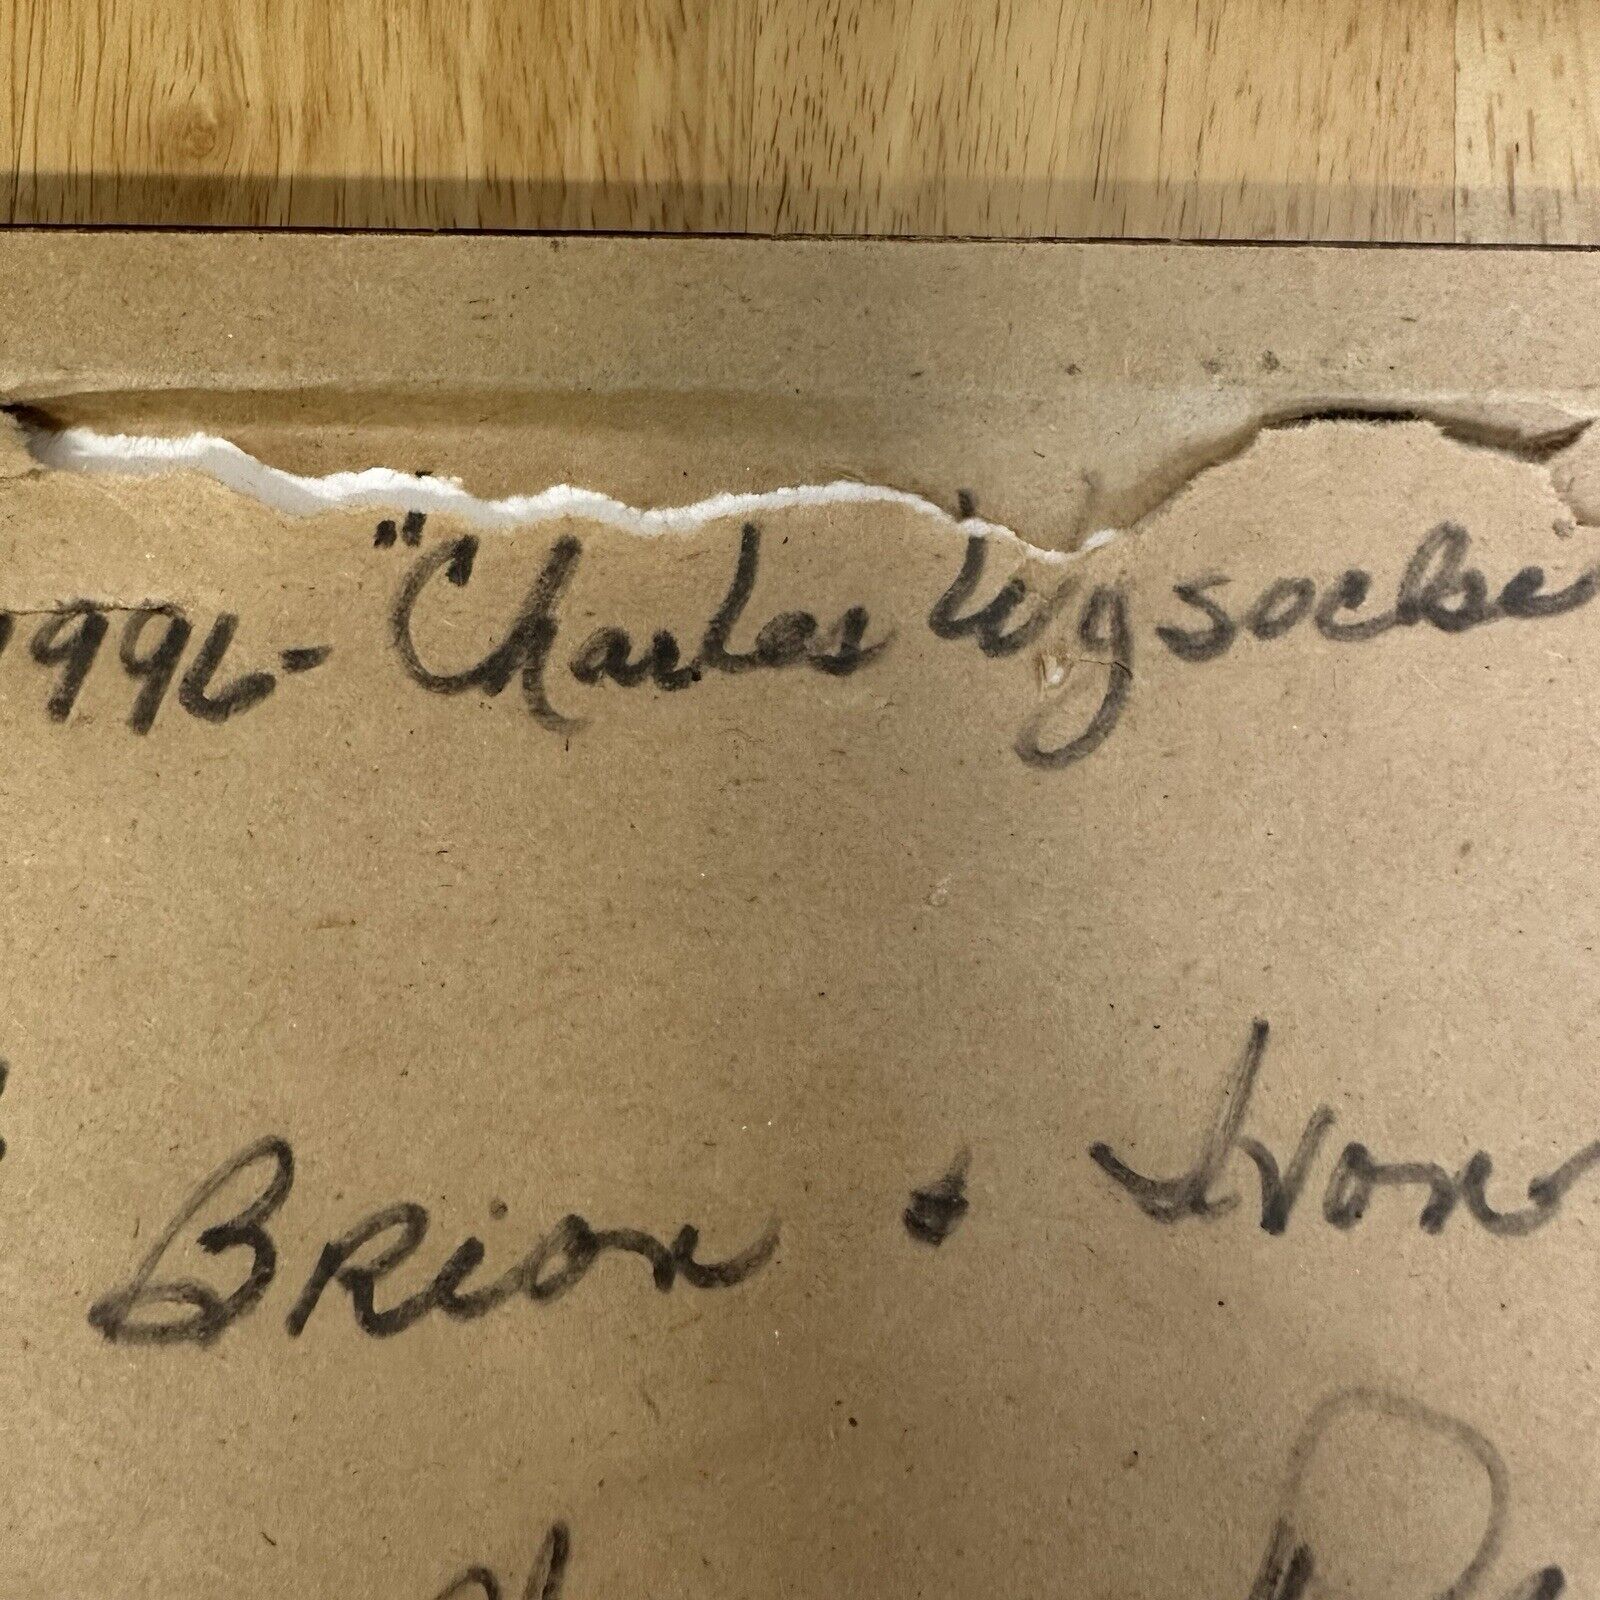 1996 - "Charles Wysocki
Brion • Ivon